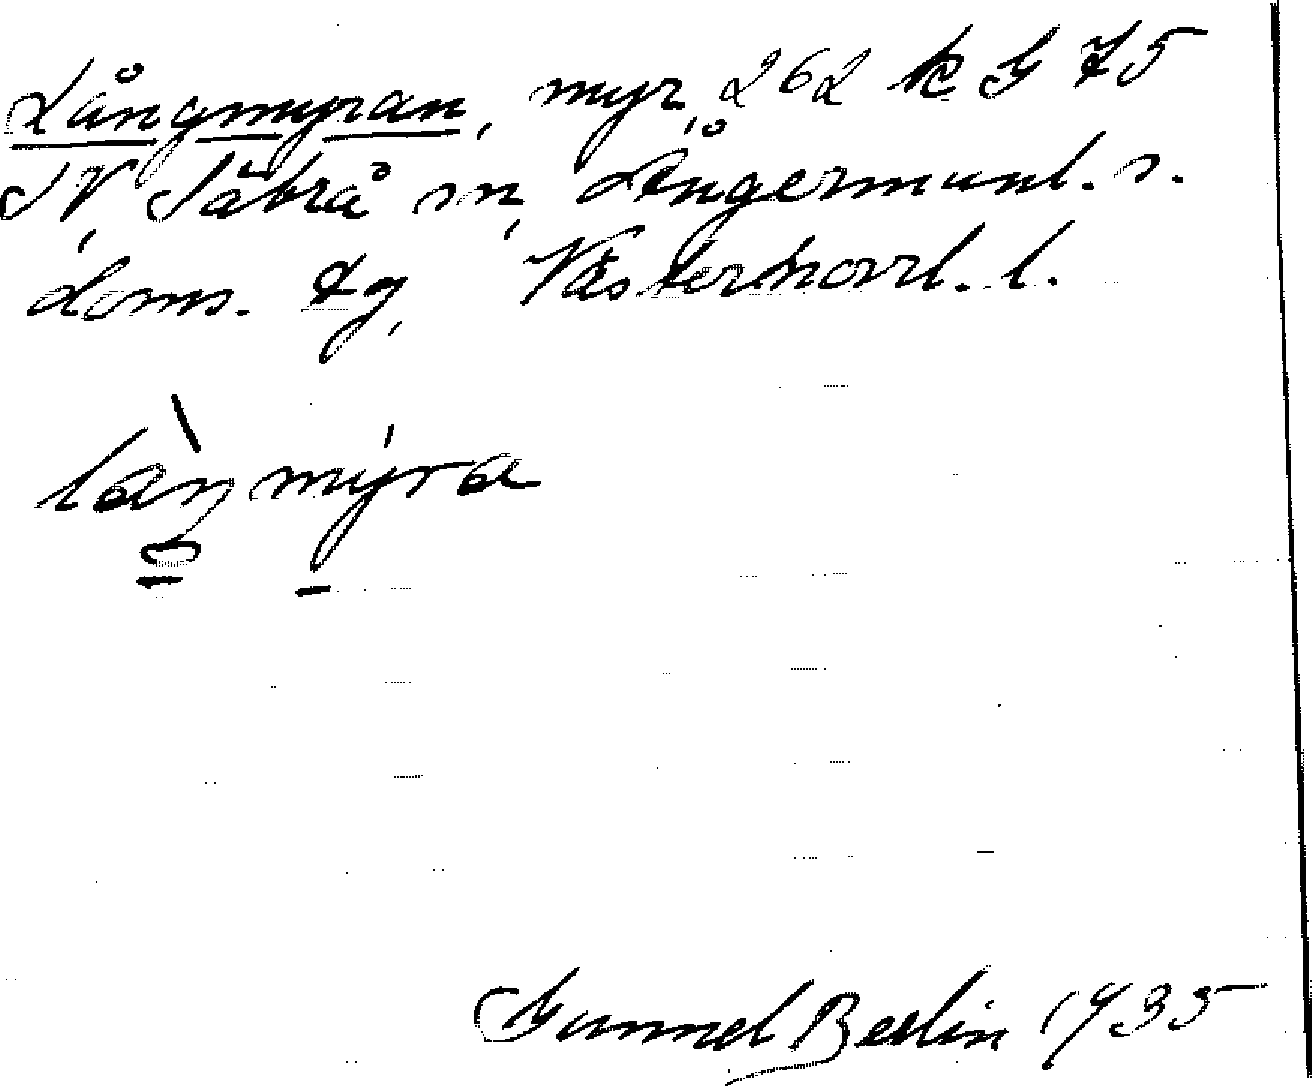 Långmyran, myr, 262 k G 75
SV, Säbrå sn, Ångermanl. s.
doms. tg, Västernorrl. l.
låŋmyra
Gunnel Berlin 1935